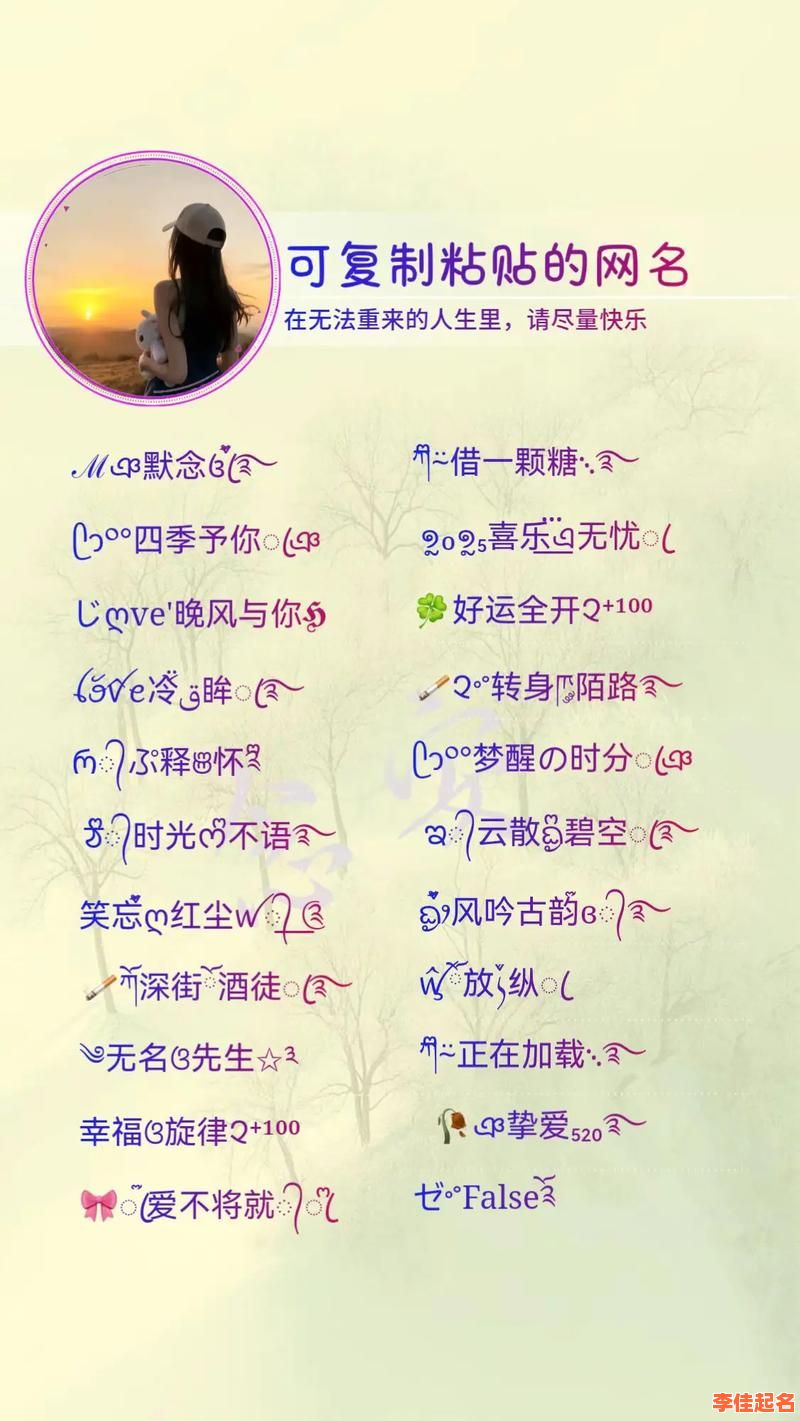 可复制粘贴的网名
在无法重来的人生里，请尽量快乐
ℳ ঞ默念ଓ
借一颗糖
四季予你
喜乐 无忧
じღve'晚风与你
🍀好运全开⁺¹⁰⁰
冷 眸
转身 陌路
释 怀
梦醒の时分
时光 不语
云散 碧空
笑忘ღ红尘
风吟古韵
深街 酒徒
放 纵
༄无名ଓ先生☆
正在加载
幸福ଓ旋律⁺¹⁰⁰
🥀ঞ挚爱₅₂₀
🎀爱不将就
ゼ False
李佳起名